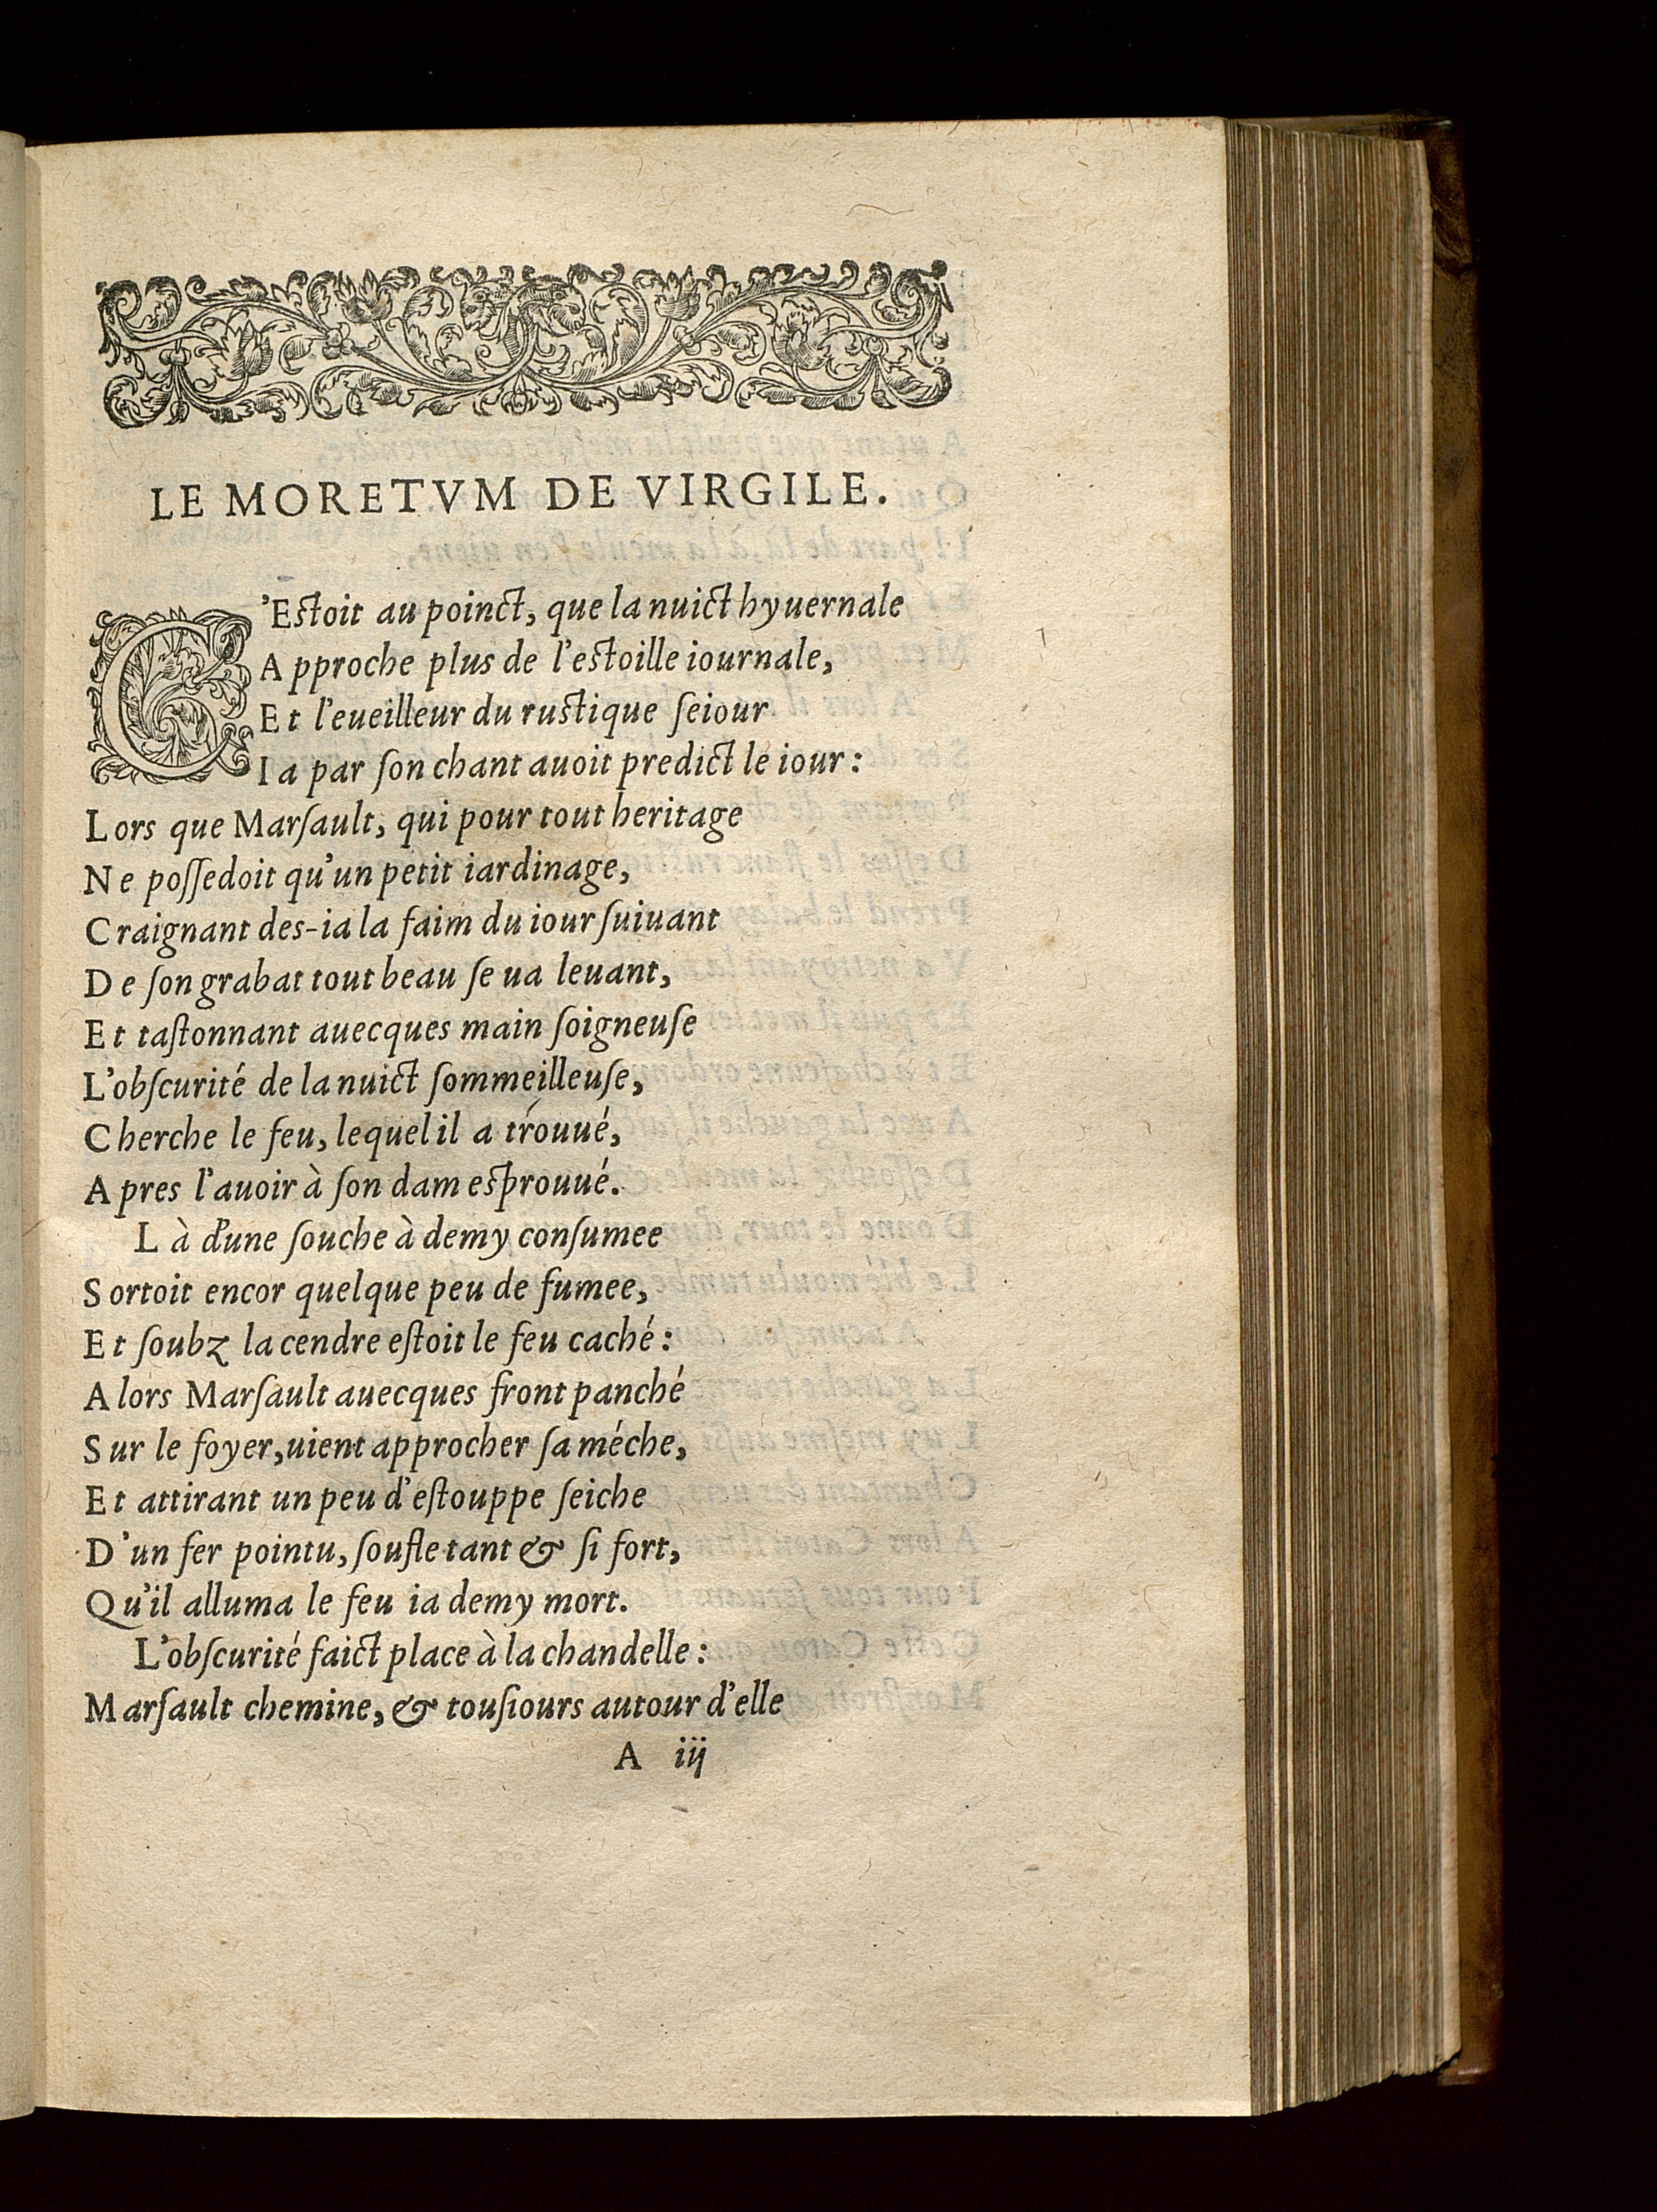 LE MORETVM DE VIRGILE.
C'Estoit au poinct, que la nuict hyuernale
Approche plus de l'estoille iournale,
Et l'eueilleur du rustique ſeiour
Ia par ſon chant auoit predict le iour:
Lors que Marſault, qui pour tout heritage
Ne poſſedoit qu'un petit iardinage,
Craignant des-ia la faim du iour ſuiuant
De ſon grabat tout beau ſe ua leuant,
Et taſtonnant auecques main ſoigneuſe
L'obſcurité de la nuict ſommeilleuſe,
Cherche le feu, lequel il a trouué,
Apres l'auoir à ſon dam esprouué.
Là d'une ſouche à demy conſumee
Sortoit encor quelque peu de fumee,
Et ſoubz la cendre eſtoit le feu caché:
Alors Marſault auecques front panché
Sur le foyer, uient approcher ſa méche,
Et attirant un peu d'eſtouppe ſeiche
D'un fer pointu, ſoufle tant & ſi fort,
Qu'il alluma le feu ia demy mort.
L'obſcurité faict place à la chandelle:
Marſault chemine, & touſiours autour d'elle
A iij